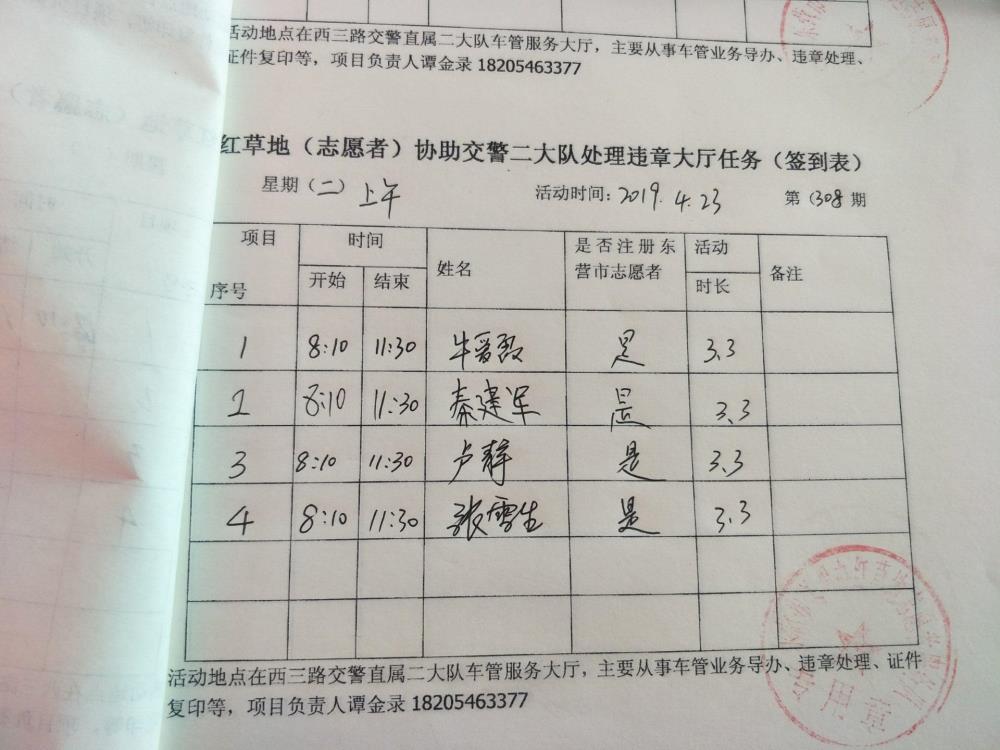 活动地点在西三路交警直属二大队车管服务大厅，主要从事车管业务导办、违章处理、
证件复印等，项目负责人谭金录 18205463377
红草地（志愿者）协助交警二大队处理违章大厅任务（签到表）
星期（二）上午 活动时间：2019.4.23 第（308 期
项目 时间 姓名 是否注册东营市志愿者 活动时长 备注
序号 开始 结束
1 8:10 11:30 是 3.3
2 8:10 11:30 秦建军 是 3.3
3 8:10 11:30 卢静 是 3.3
4 8:10 11:30 张雪生 是 3.3
活动地点在西三路交警直属二大队车管服务大厅，主要从事车管业务导办、违章处理、证件
复印等，项目负责人谭金录 18205463377
用章